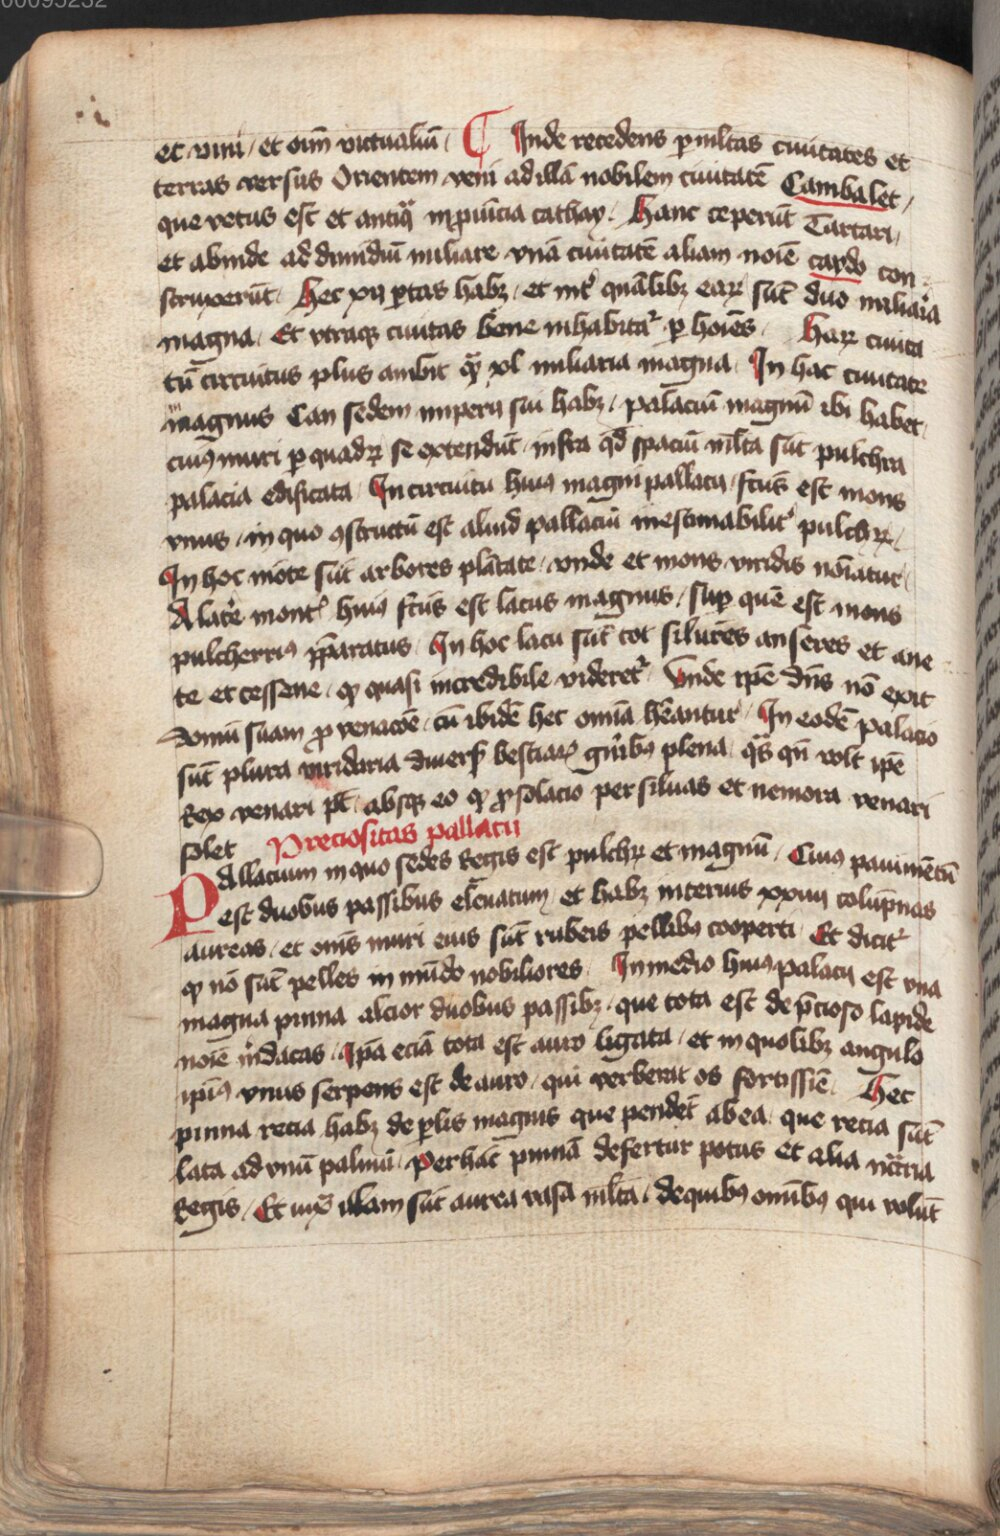 00095232
et vini / et oīm victualiū / Inde recedens p̄ mltas ciuitates et
terras versus Orientem veni ad illā nobilem ciuitatē Cambalet /
que vetus est et antiqᷓ in ꝓuīcia cathay. Hanc ceperūt Tartari /
et abinde ad dimidiū miliare vnā ciuitatē aliam noīe caydo con
struxerūt. Hec xij portas habꝫ / et int͛ quālibꝫ eaꝝ sūt duo miliaria
magna. Et vtraqꝫ ciuitas bene inhabitat͛ ꝑ hoīes. Haꝝ ciuita
tū circuitus plus ambit qᷓ xl miliaria magna. In hac ciuitate
magnus Can sedem imperij sui habꝫ / palaciū magnū ibi habet
cuiꝰ muri ꝑ quadꝝ se extendūt / infra qd̄ spaciū mlta sūt pulchra
palacia edificata. In circuitu huiꝰ magni pallacij / fctus est mons
vnus / in quo ꝯstructū est aliud pallaciū inestimabilit͛ pulchꝝ /
In hoc mōte sūt arbores plātate / vnde et mons viridis nōīatur /
A late͛ mont͛ huiꝰ fctūs est lacus magnus / suꝑ quē est mons
pulcherriꝰ p̄paratus. In hoc lacu sūt tot silures anseres et ane
te et cessene / qꝫ quasi incredibile videret͛. Unde ipē dn̄s nō exit
domū suam ꝓ venacōe / cū ibidē hec omīa hēantur. In eodē palacio
sūt plura viridaria diuers bestiaꝝ gn̄ibꝰ plena / qᷓs qn̄ volt ipē
Rex venari pt̄ / absqꝫ eo qꝫ ꝓ solacio per siluas et nemora venari
solet Preciositas pallacij
PAllacium in quo sedes Regis est pulchꝝ et magnū. Cuiꝰ pauimētū
est duobus passibus eleuatum / et habꝫ interius xxiiij colūpnas
aureas / et om̄s muri eius sūt rubeis pellibꝰ cooperti. Et dicit͛
qꝫ nō sūt pelles in mūdo nobiliores. In medio huiꝰ palacij est vna
magna pinna alcior duobus passibꝫ / que tota est de p̄cioso lapide
noīe m̄dacas. Ipā eciā tota est auro ligata / et in quolibꝫ angulo
ipiꝰ vnus serpens est de auro / qui verberat os fortissīe. Hec
pinna recia habꝫ de ꝑlis magnis que pendēt ab ea / que recia sūt
lata ad vnū palmū. Per hāc pinnā defertur potus et alia nc̄cria
Regis. Et iuxͣ illam sūt aurea vasa mlta / de quibꝰ omībꝰ qui volūt